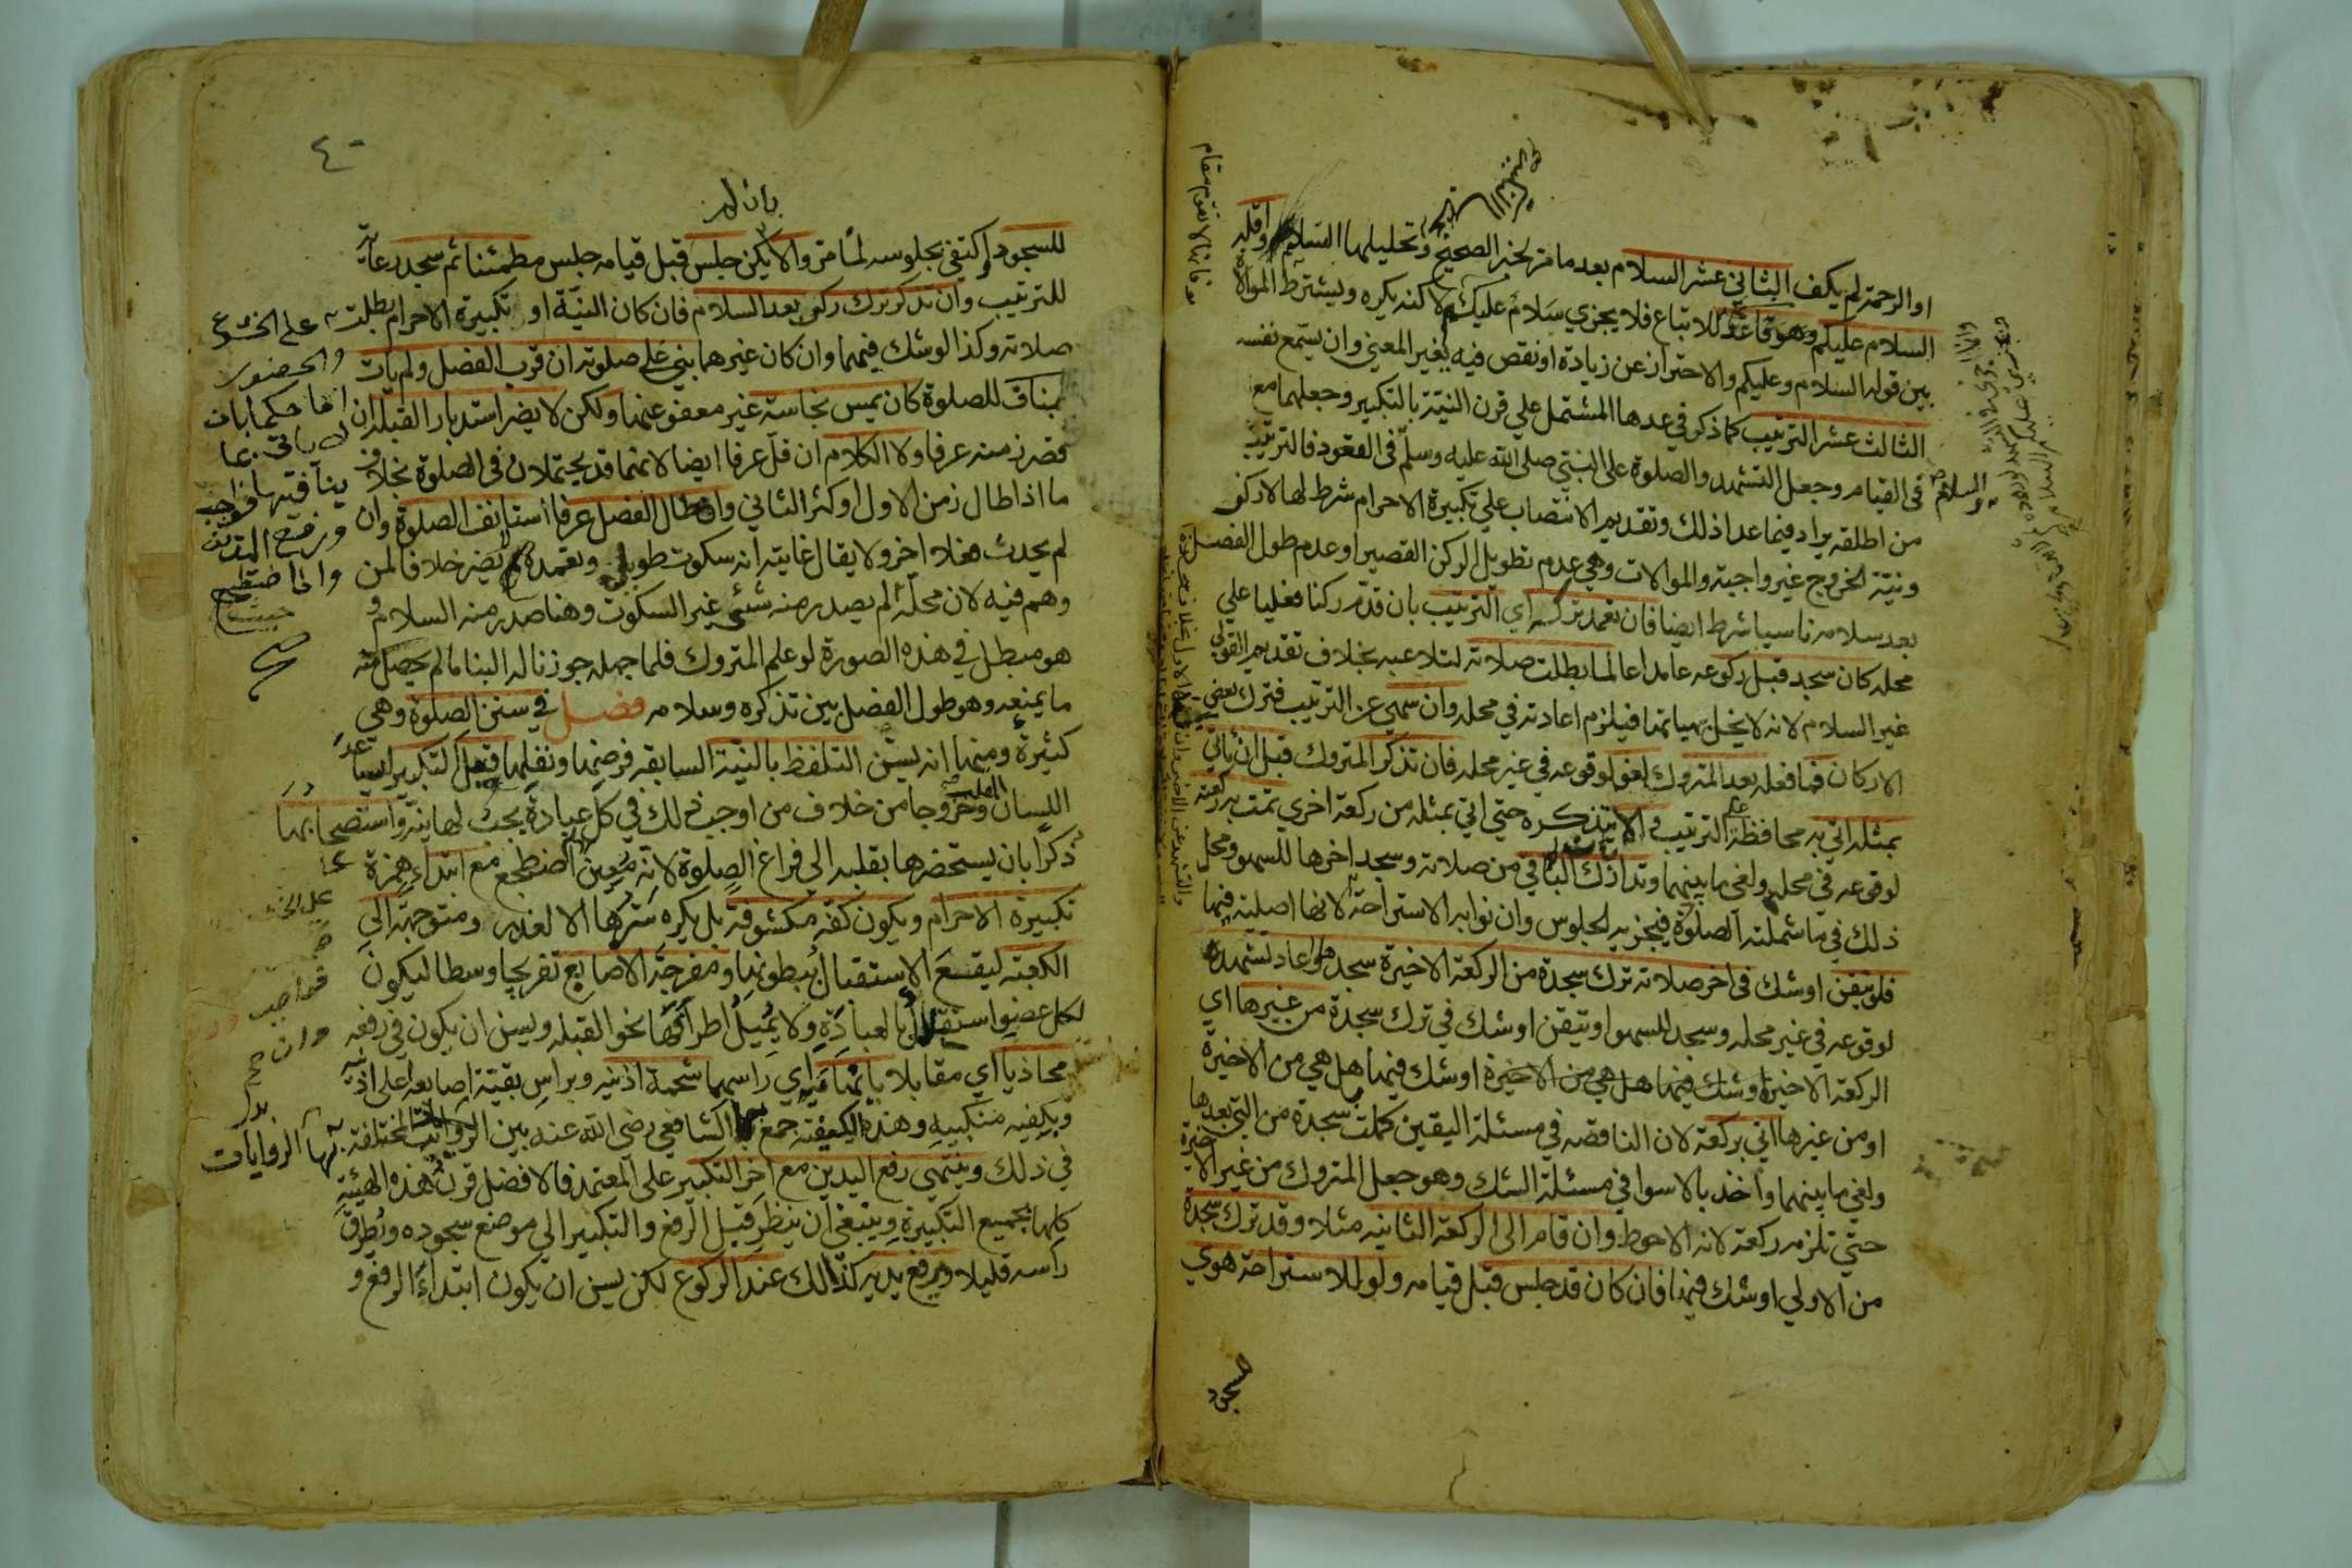 او الرحمة لم يكف الثاني عشر السلام بعد ما مر لخبر الصحيح وتحليلها التسليم واقله
السلام عليكم وهو قاعد للاتباع فلا يجزي سلام عليكم لا كنه يكره ويشترط الموالاة
بين قوله السلام وعليكم والاحتراز عن زيادة او نقص فيه يغير المعني وان يسمع نفسه
الثالث عشر الترتيب كما ذكر في عدها المشتمل علي قرن النية بالتكبير وجعلهما مع
في القيام وجعل التشهد والصلوة على النبي صلى الله عليه وسلم في القعود فالترتيب
من اطلقه يراد فيما عدا ذلك وتقديم الانتصاب علي تكبيرة الاحرام شرط لها لا ركن
ونية الخروج غير واجبة والموالات وهي عدم تطويل الركن القصير او عدم طول الفصل
بعد سلامه ناسيا شرط ايضا فان تعمد تركه اي الترتيب بان قدم ركنا فعليا علي
محله كان سجد قبل ركوعه عامدا عالما بطلت صلاته لتلاعبه بخلاف تقديم القولي
غير السلام لانه لا يخل بهياتها فيلزم اعادته في محله وان سهي عن الترتيب فترك بعض
الاركان فما فعله بعد المتروك لغو لوقوعه في غير محله فان تذكر المتروك قبل ان ياتي
بمثله اتي به محافظة علي الترتيب والا يتذكره حتي اتي بمثله من ركعة اخري تمت به ركعته
لوقوعه في محله ولغي ما بينهما وتدارك الباقي من صلاته وسجد اخرها للسهو ومحل
ذلك في ما شملته الصلوة فيجزيه الجلوس وان نوا به الاستراحة لانها اصلية فيها
فلو تيقن او شك في اخر صلاته ترك سجدة من الركعة الاخيرة سجدها واعاد تشهده
لوقوعه في غير محله وسجد للسهو او تيقن او شك في ترك سجدة من غيرها اي
الركعة الاخيرة او شك فيها هل هي من الاخيرة او شك فيها هل هي من الاخيرة
او من غيرها اتي بركعة لان الناقصه في مسئلة اليقين كملت بسجدة من التي بعدها
ولغي ما بينهما واخذ بالاسوا في مسئلة الشك وهو جعل المتروك من غير الاخيرة
حتي تلزمه ركعة لانه الاحوط وان قام الى الركعة الثانيه مثلا وقد ترك سجدة
من الاولي او شك فيها فان كان قد جلس قبل قيامه ولو للاستراحة هوي
للسجود
السلام
٤٠
بان لم
للسجود واكتفي بجلوسه لما مر والا يكن جلس قبل قيامه جلس مطمئنا ثم سجد رعاية
للترتيب وان تذكر ترك ركن بعد السلام فان كان النية او تكبيرة الاحرام بطلت
صلاته وكذا لو شك فيهما وان كان غيرهما بني علي صلوته ان قرب الفصل ولم يات
بمناف للصلوة كان يمس نجاسة غير معفو عنها ولكن لا يضر استدبار القبلة ان
قصر زمنه عرفا ولا الكلام ان قل عرفا ايضا لانهما قد يحتملان في الصلوة بخلاف
ما اذا طال زمن الاول او كثر الثاني وان طال الفصل عرفا استانف الصلوة وان
لم يحدث فعلا اخر ولا يقال غايته انه سكوت طويل وتعمده لا يضر خلافا لمن
وهم فيه لان محله لم يصدر منه شئي غير السكوت وهنا صدر منه السلام و
هو مبطل في هذه الصورة لو علم المتروك فلما جهله جوزنا له البنا ما لم يحصل منه
ما يمنعه وهو طول الفصل بين تذكره وسلامه فصل في سنن الصلوة وهي
كثيرة ومنها انه يسن التلفظ بالنية السابقه فرضها ونفلها قبل التكبير ليساعد
اللسان القلب وخروجا من خلاف من اوجب ذلك في كل عبادة يجب لها نية واستصحابها
ذكرا بان يستحضرها بقلبه الى فراغ الصلوة لانه معين مع ابتداء همزة
تكبيرة الاحرام ويكون كفه مكشوفة بل يكره سترها الا لعذر ومتوجهة الى
الكعبة ليقع الاستقبال ببطونها ومفرجة الاصابع تفريجا وسطا ليكون
لكل عضو استقلال بالعبادة ولا يميل اطرافها نحو القبلة ويسن ان يكون في رفعه
محاذيا اي مقابلا بابهاميه اي راسهما شحمة اذنيه وبراس بقية اصابعه اعلي اذنيه
وبكفيه منكبيه وهذه الكيفية جمع بها الشافعي رضي الله عنه بين الروايات المختلفة
في ذلك وينتهي رفع اليدين مع اخر التكبير على المعتمد فالافضل قرن هذه الهيئة
كلها بجميع التكبيرة وينبغي ان ينظر قبل الرفع والتكبير الي موضع سجوده ويطرق
راسه قليلا ويرفع يديه كذالك عند الركوع لكن يسن ان يكون ابتداء الرفع و
علي الخشوع
والحضور